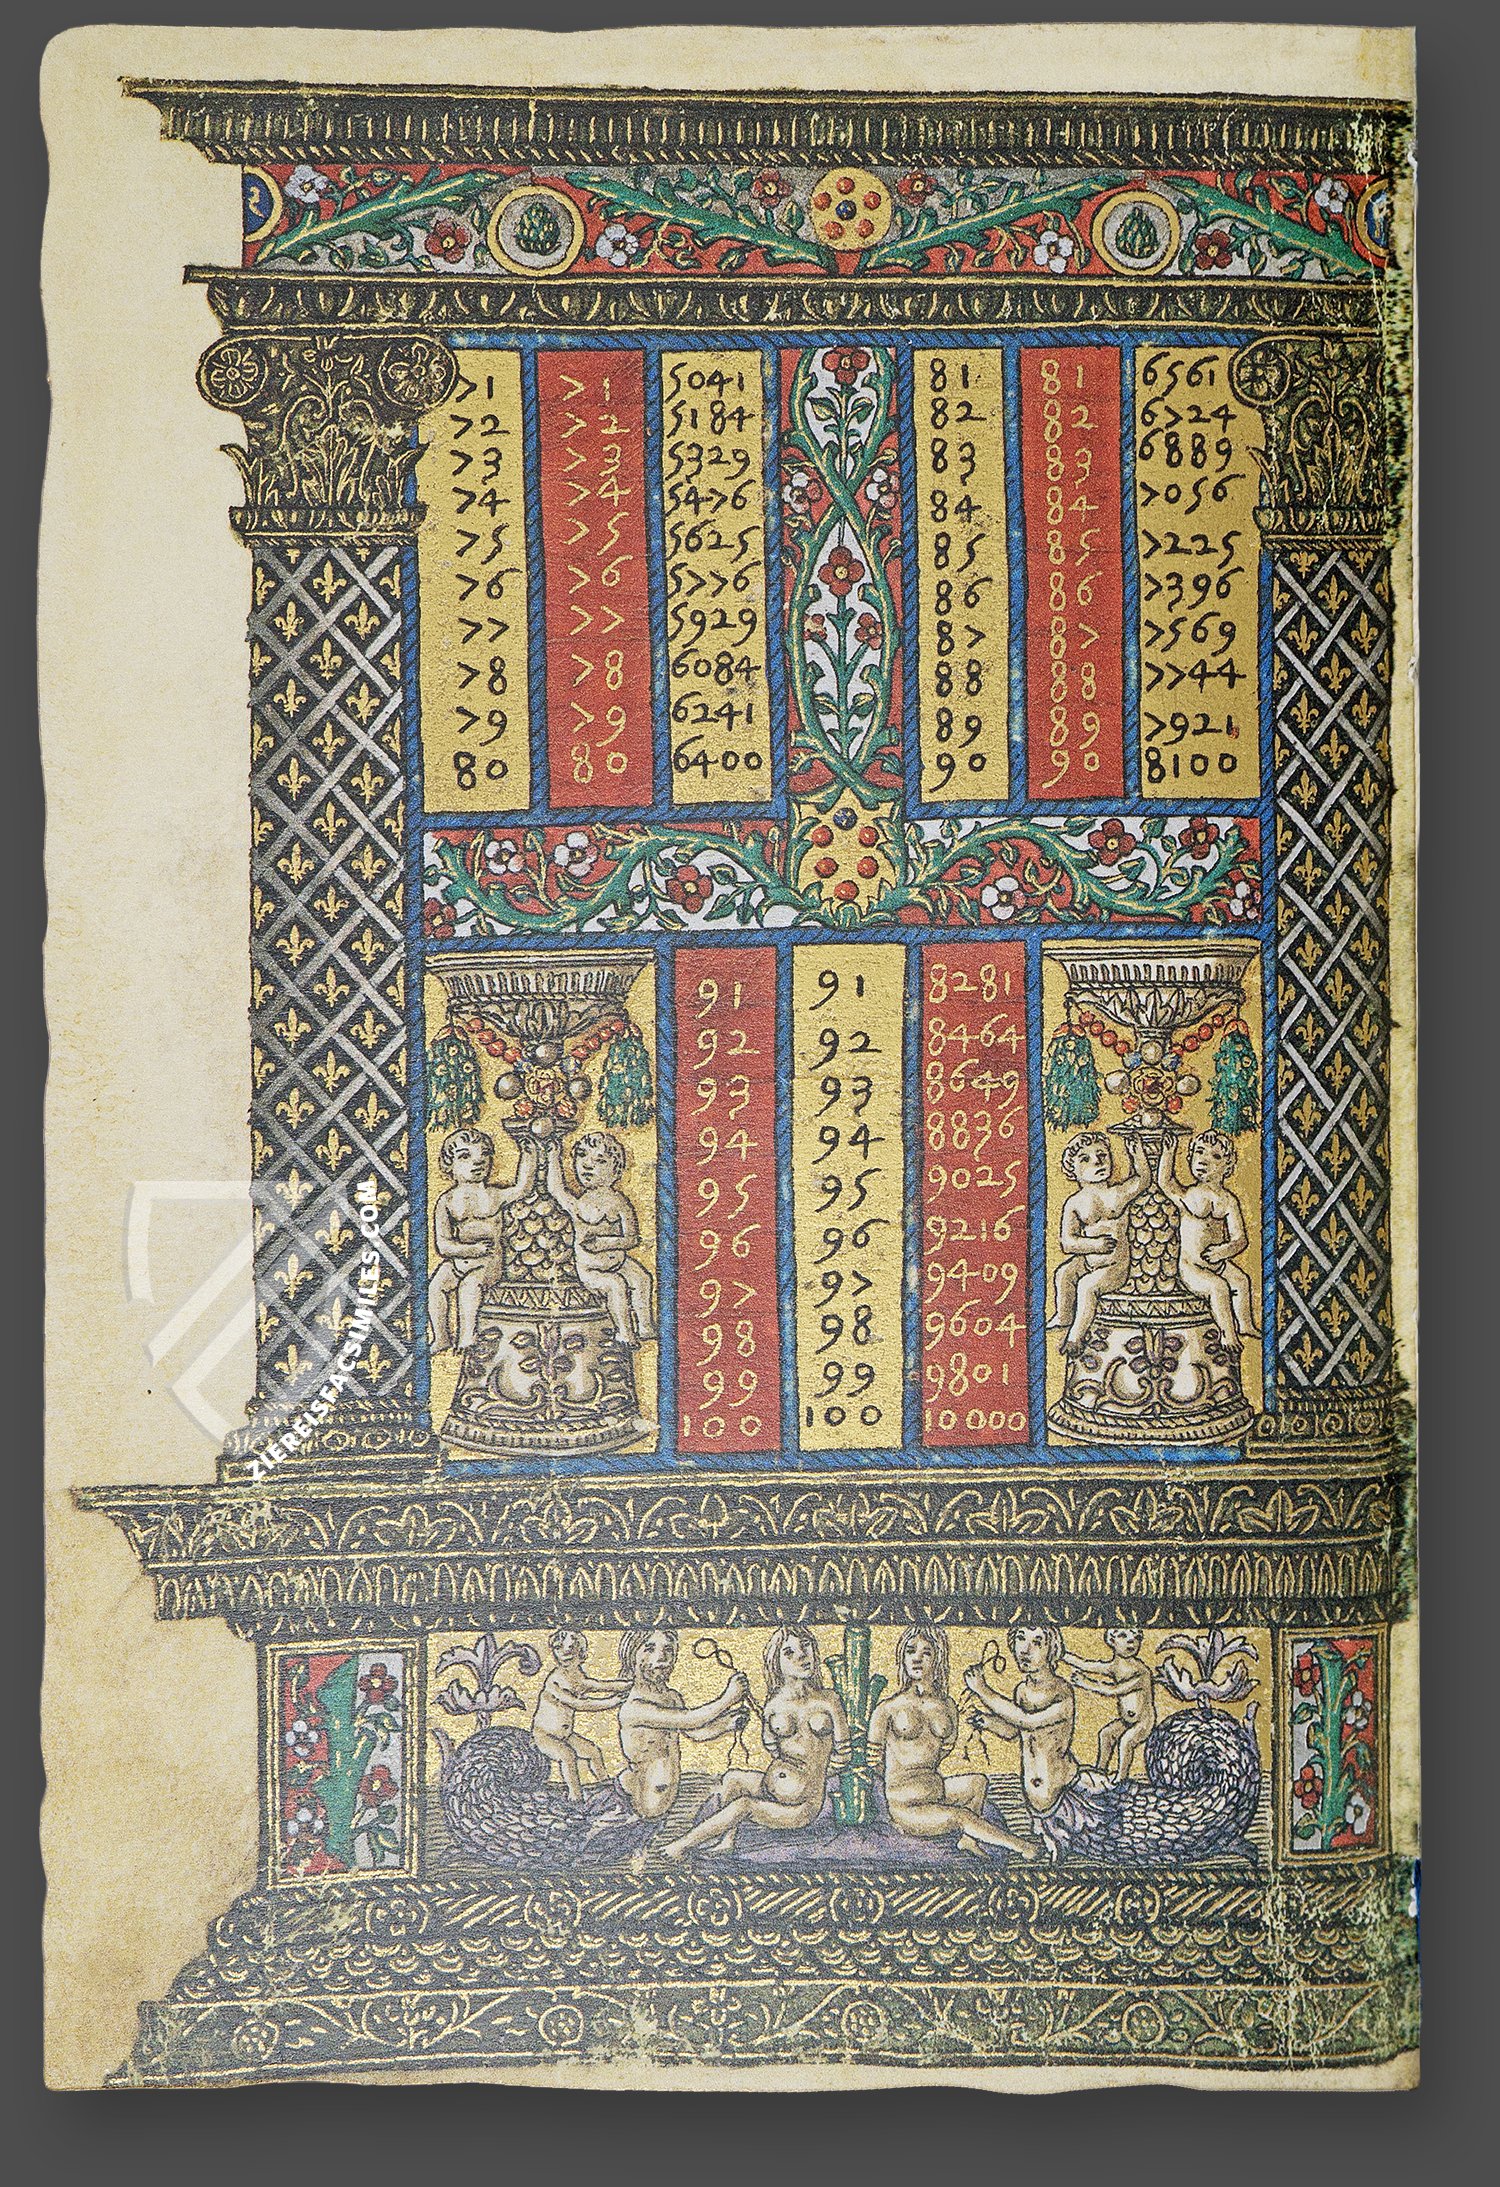 71 71 5041
72 72 5184
73 73 5329
74 74 5476
75 75 5625
76 76 5776
77 77 5929
78 78 6084
79 79 6241
80 80 6400
81 81 6561
82 82 6724
83 83 6889
84 84 7056
85 85 7225
86 86 7396
87 87 7569
88 88 7744
89 89 7921
90 90 8100
91 91 8281
92 92 8464
93 93 8649
94 94 8836
95 95 9025
96 96 9216
97 97 9409
98 98 9604
99 99 9801
100 100 10000
ZIEREISFACSIMILES.COM